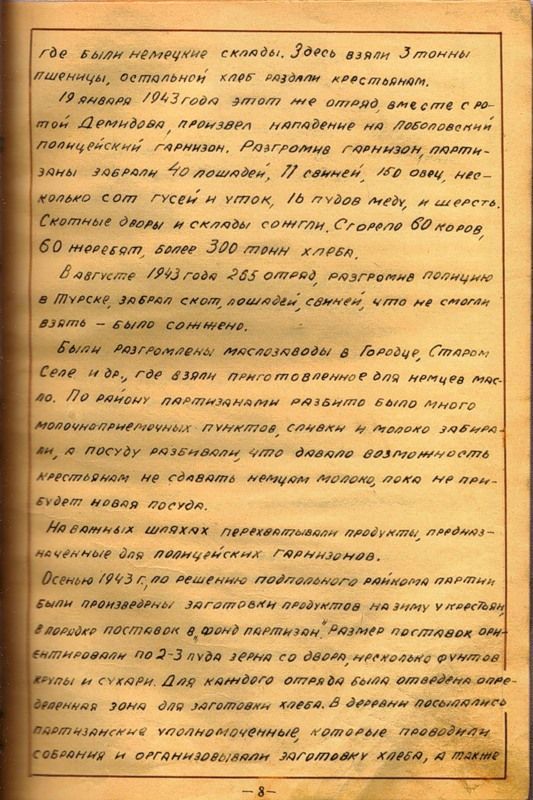 где были немецкие склады. Здесь взяли 3 тонны
пшеницы, остальной хлеб раздали крестьянам.
19 января 1943 года этот же отряд, вместе с ро-
той Демидова, произвел нападение на Лоболовский
полицейский гарнизон. Разгромив гарнизон, парти-
заны забрали 40 лошадей, 11 свиней, 150 овец, нес-
колько сот гусей и уток, 16 пудов меду, и шерсть.
Скотные дворы и склады сожгли. Сгорело 60 коров,
60 жеребят, более 300 тонн хлеба.
В августе 1943 года 265 отряд, разгромив полицию
в Турске, забрал скот, лошадей, свиней, что не смогли
взять – было сожжено.
Были разгромлены маслозаводы в Городце, Старом
Селе и др., где взяли приготовленное для немцев мас-
ло. По району партизанами разбито было много
молочноприемочных пунктов, сливки и молоко забира-
ли, а посуду разбивали, что давало возможность
крестьянам не сдавать немцам молоко, пока не при-
будет новая посуда.
На важных шляхах перехватывали продукты, предназ-
наченные для полицейских гарнизонов.
Осенью 1943 г., по решению подпольного райкома партии
были произведены заготовки продуктов на зиму у крестьян,
в порядке поставок в „фонд партизан." Размер поставок ори-
ентировали по 2-3 пуда зерна со двора, несколько фунтов
крупы и сухари. Для каждого отряда была отведена опре-
деленная зона для заготовки хлеба. В деревни посылались
партизанские уполномоченные, которые проводили
собрания и организовывали заготовку хлеба, а также
– 8 –